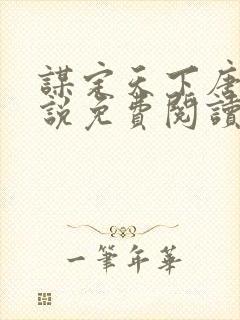 謀定天下唐
說免費閱讀
一筆年華